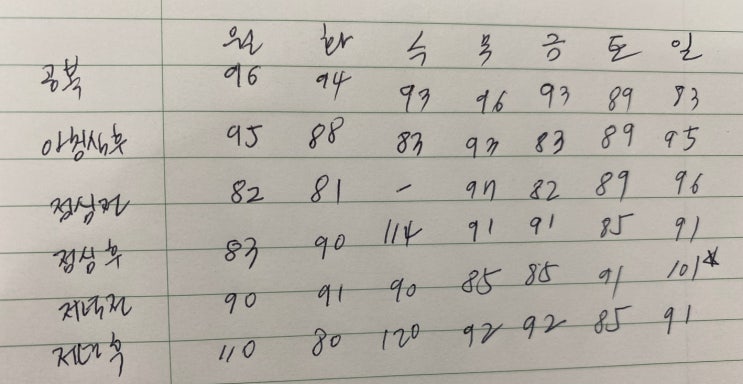 월 화 수 목 금 토 일
공복 96 94 93 96 93 89 83
아침식후 95 88 83 93 83 89 95
점심전 82 81 - 97 82 89 96
점심후 83 90 114 91 91 85 91
저녁전 90 91 90 85 85 91 101*
저녁후 110 80 120 92 92 85 91